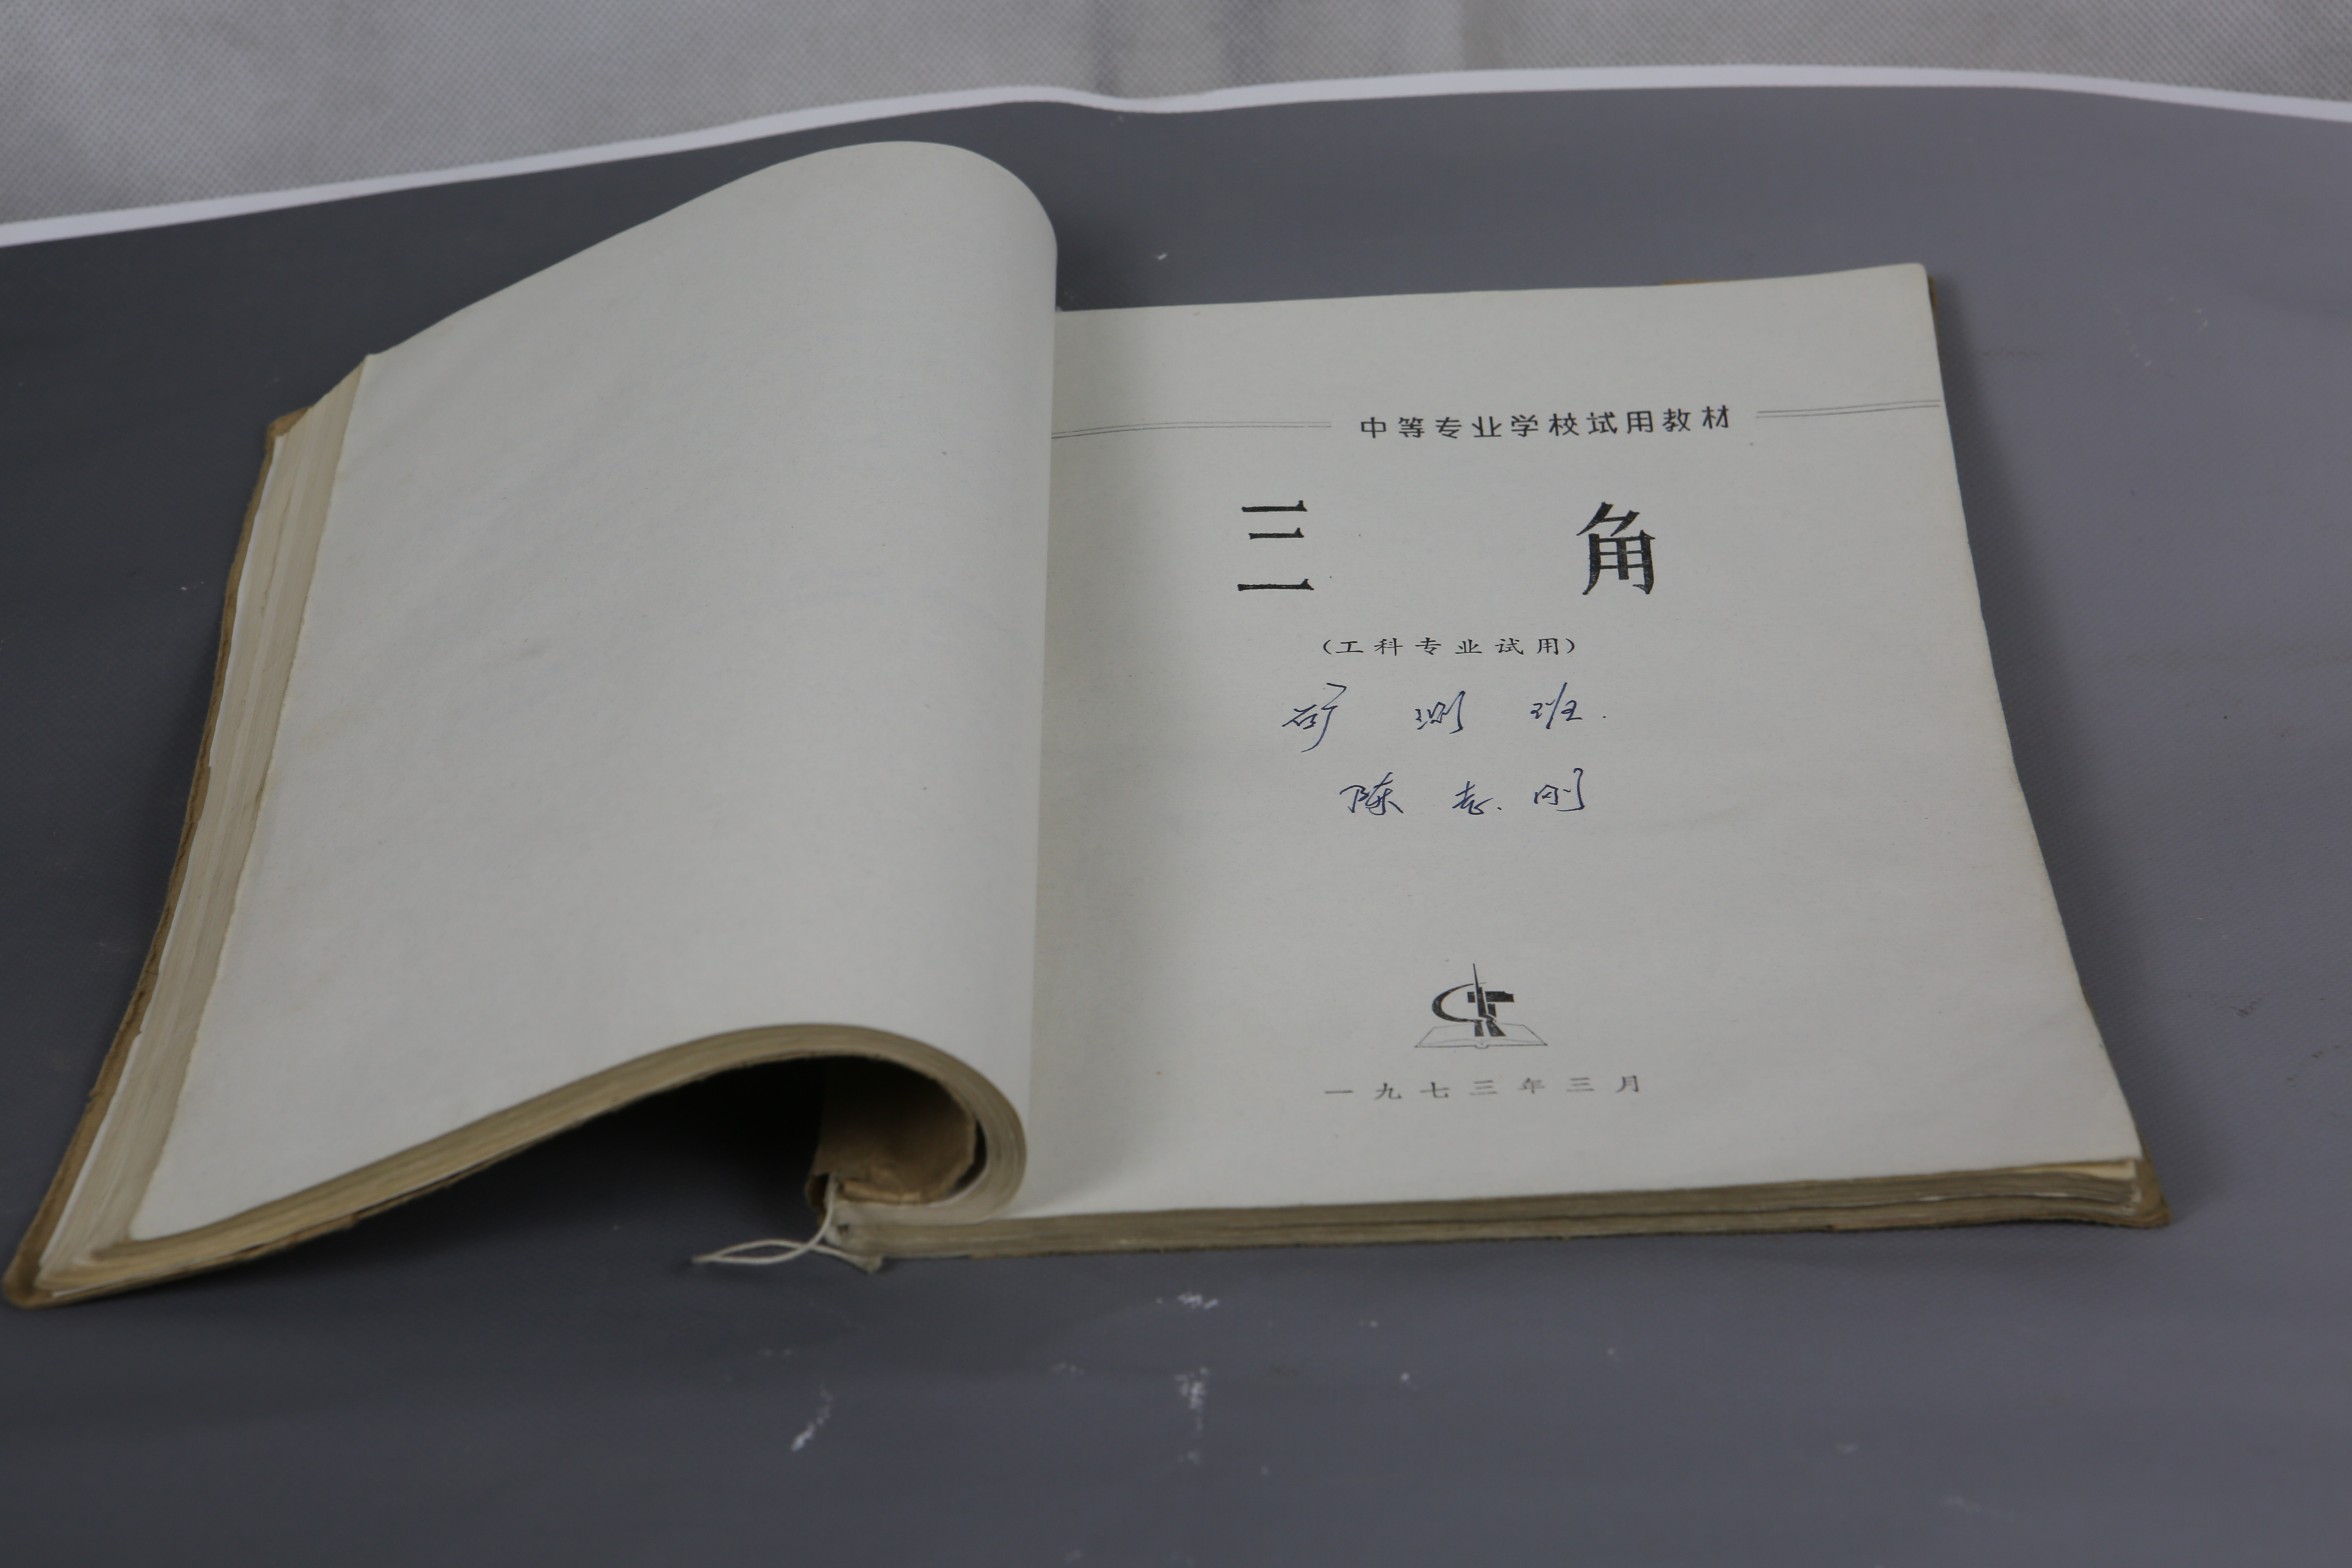 中等专业学校试用教材
三角
（工科专业试用）
矿测班.
陈志刚
一九七三年三月